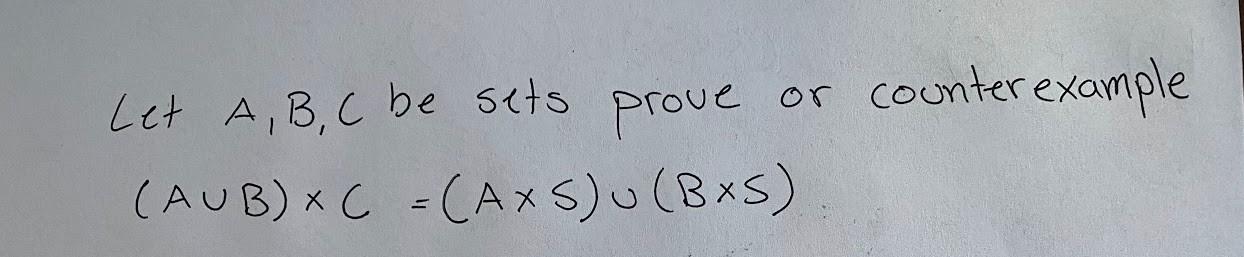 Let A, B, C be sets prove or counterexample
(A ∪ B) × C = (A × S) ∪ (B × S)